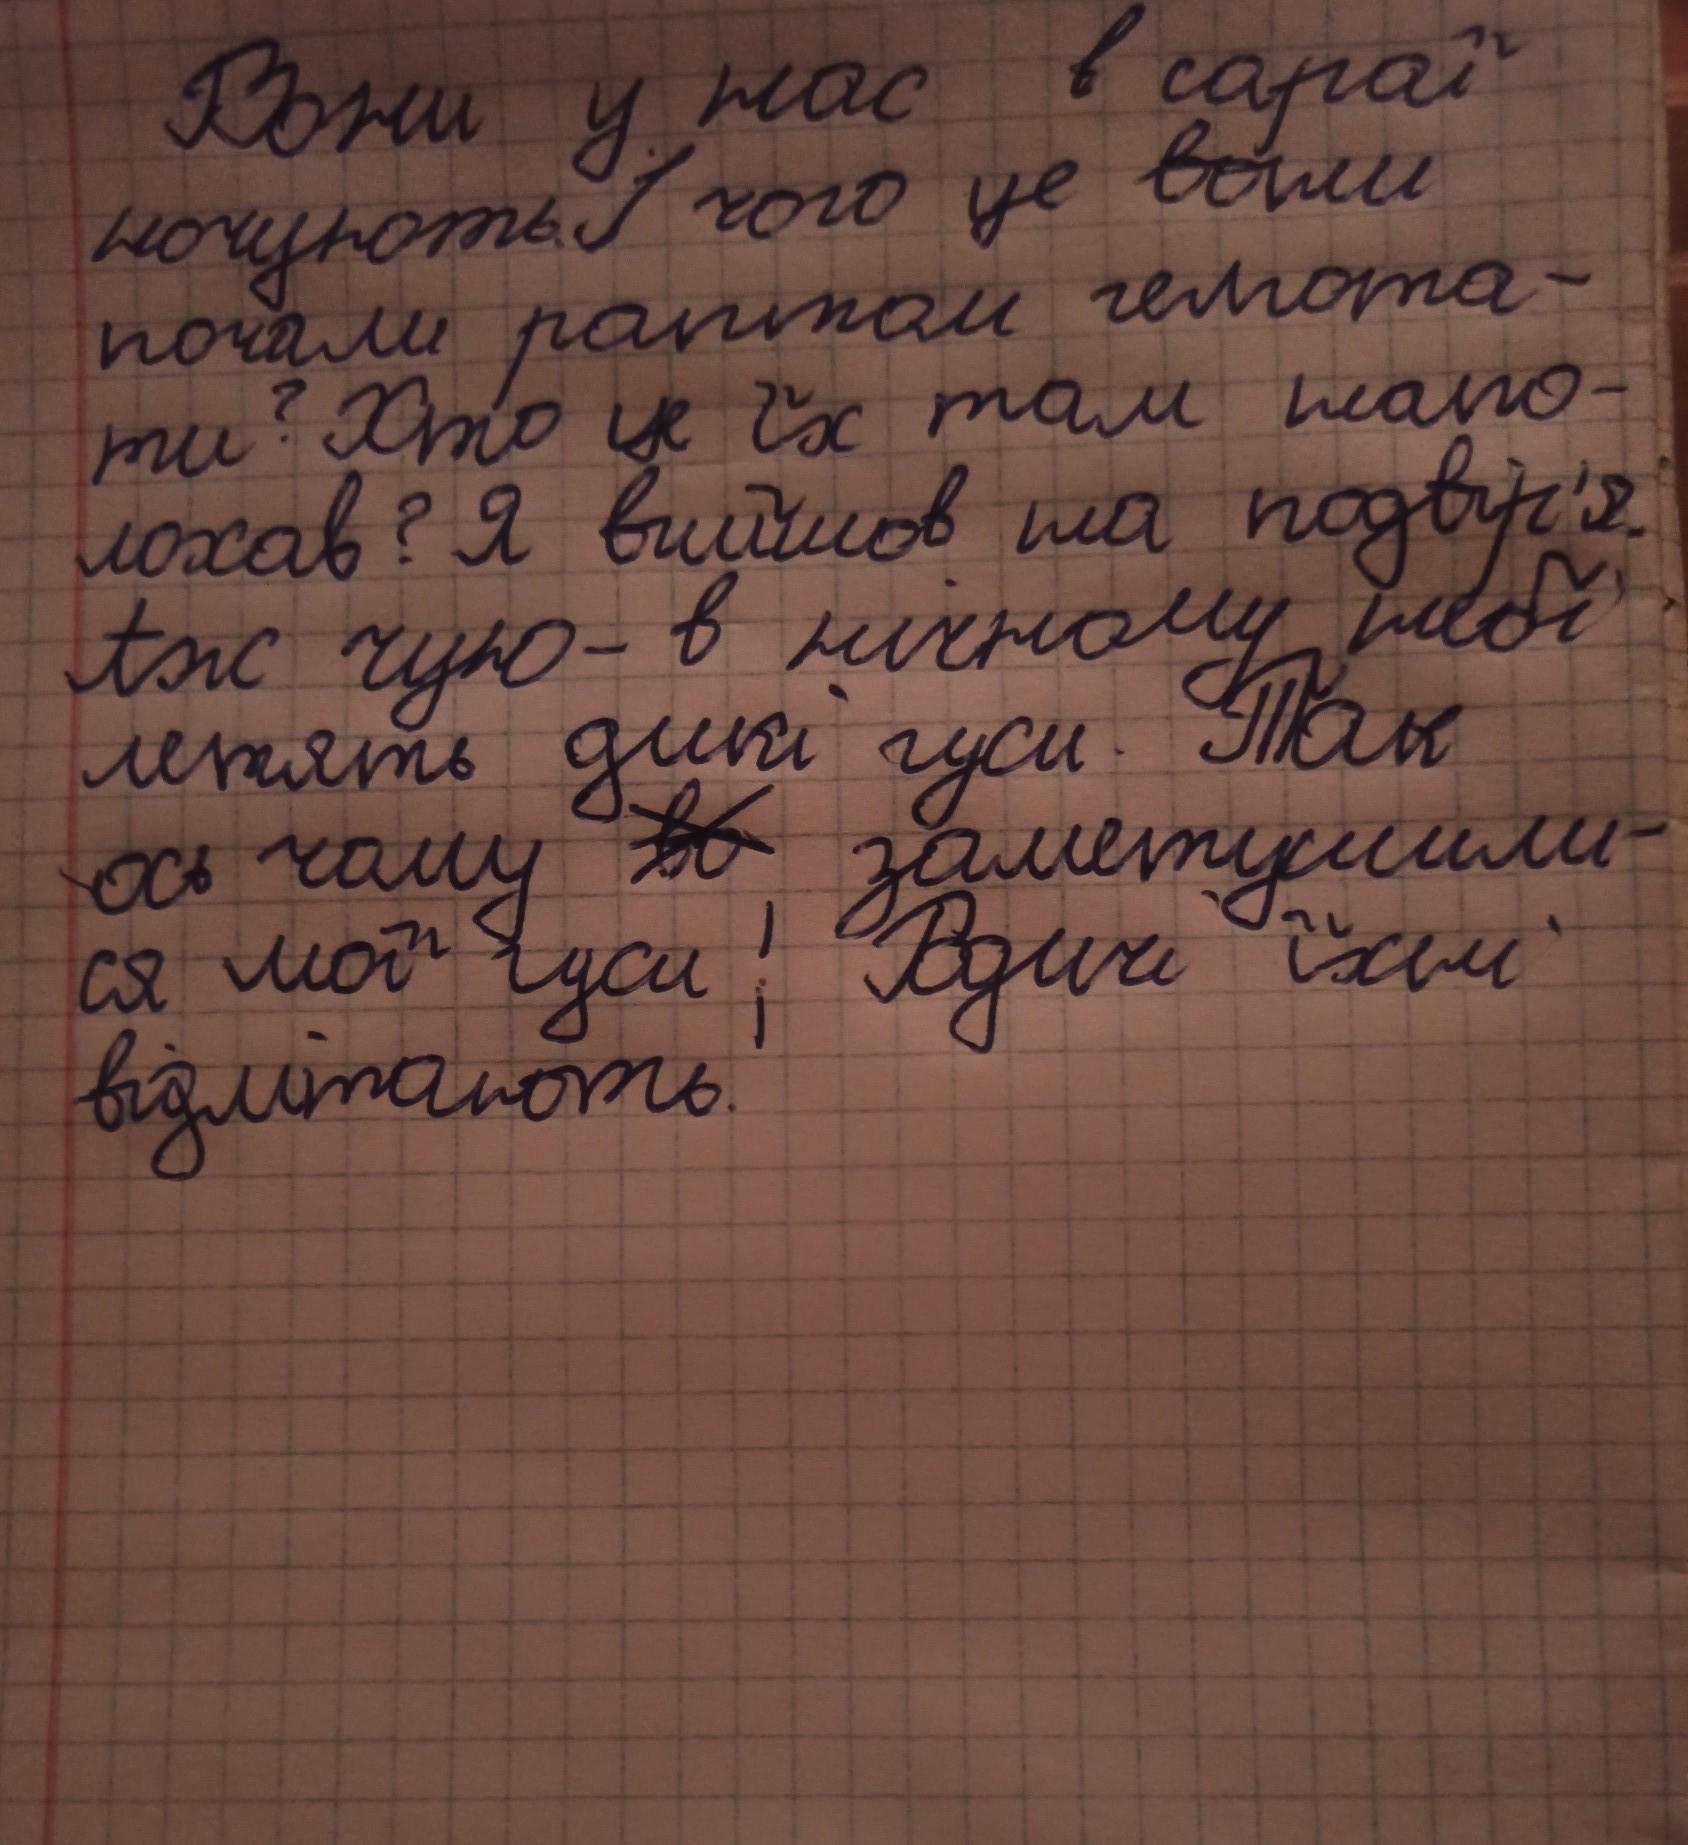 Вони у нас в сараї
ночують. І чого це вони
почали раптом гелгота-
ти? Хто це їх там напо-
лохав? Я вийшов на подвір'я.
Аж чую - в нічному небі
летять дикі гуси. Так
ось чому заметушили-
ся мої гуси! Родичі їхні
відлітають.